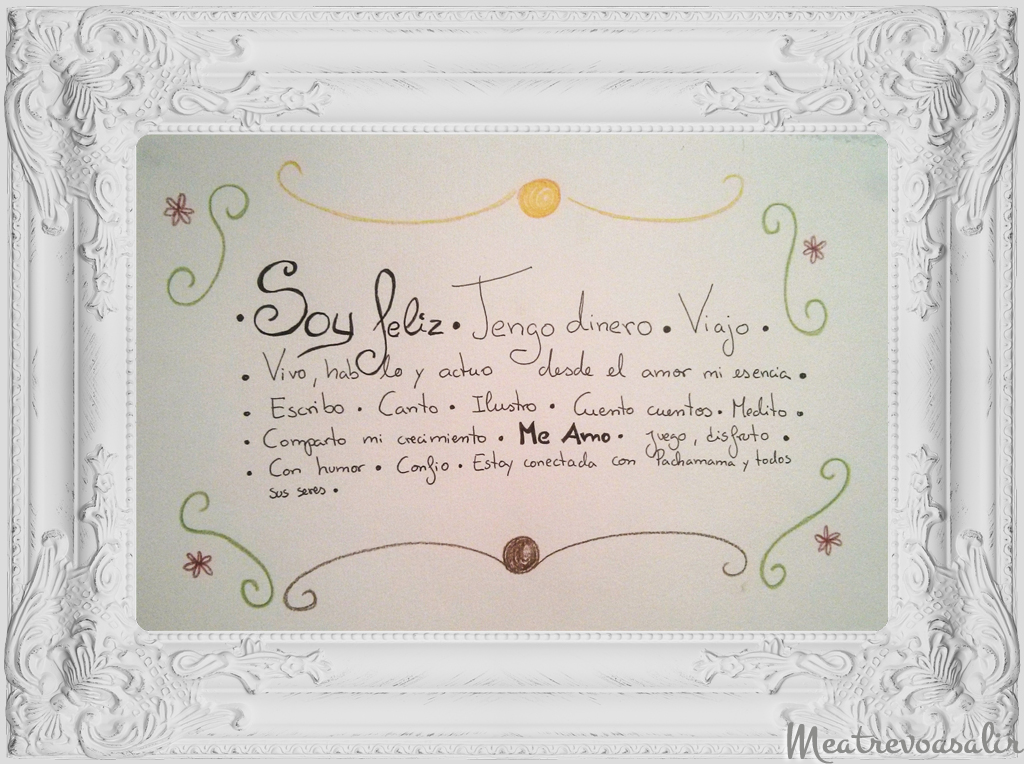 · Soy feliz · Tengo dinero · Viajo ·
· Vivo, hablo y actuo desde el amor mi esencia ·
· Escribo · Canto · Ilustro · Cuento cuentos · Medito ·
· Comparto mi crecimiento · Me Amo · juego, disfruto ·
· Con humor · Confio · Estoy conectada con Pachamama y todos
sus seres ·
Meatrevoasalir